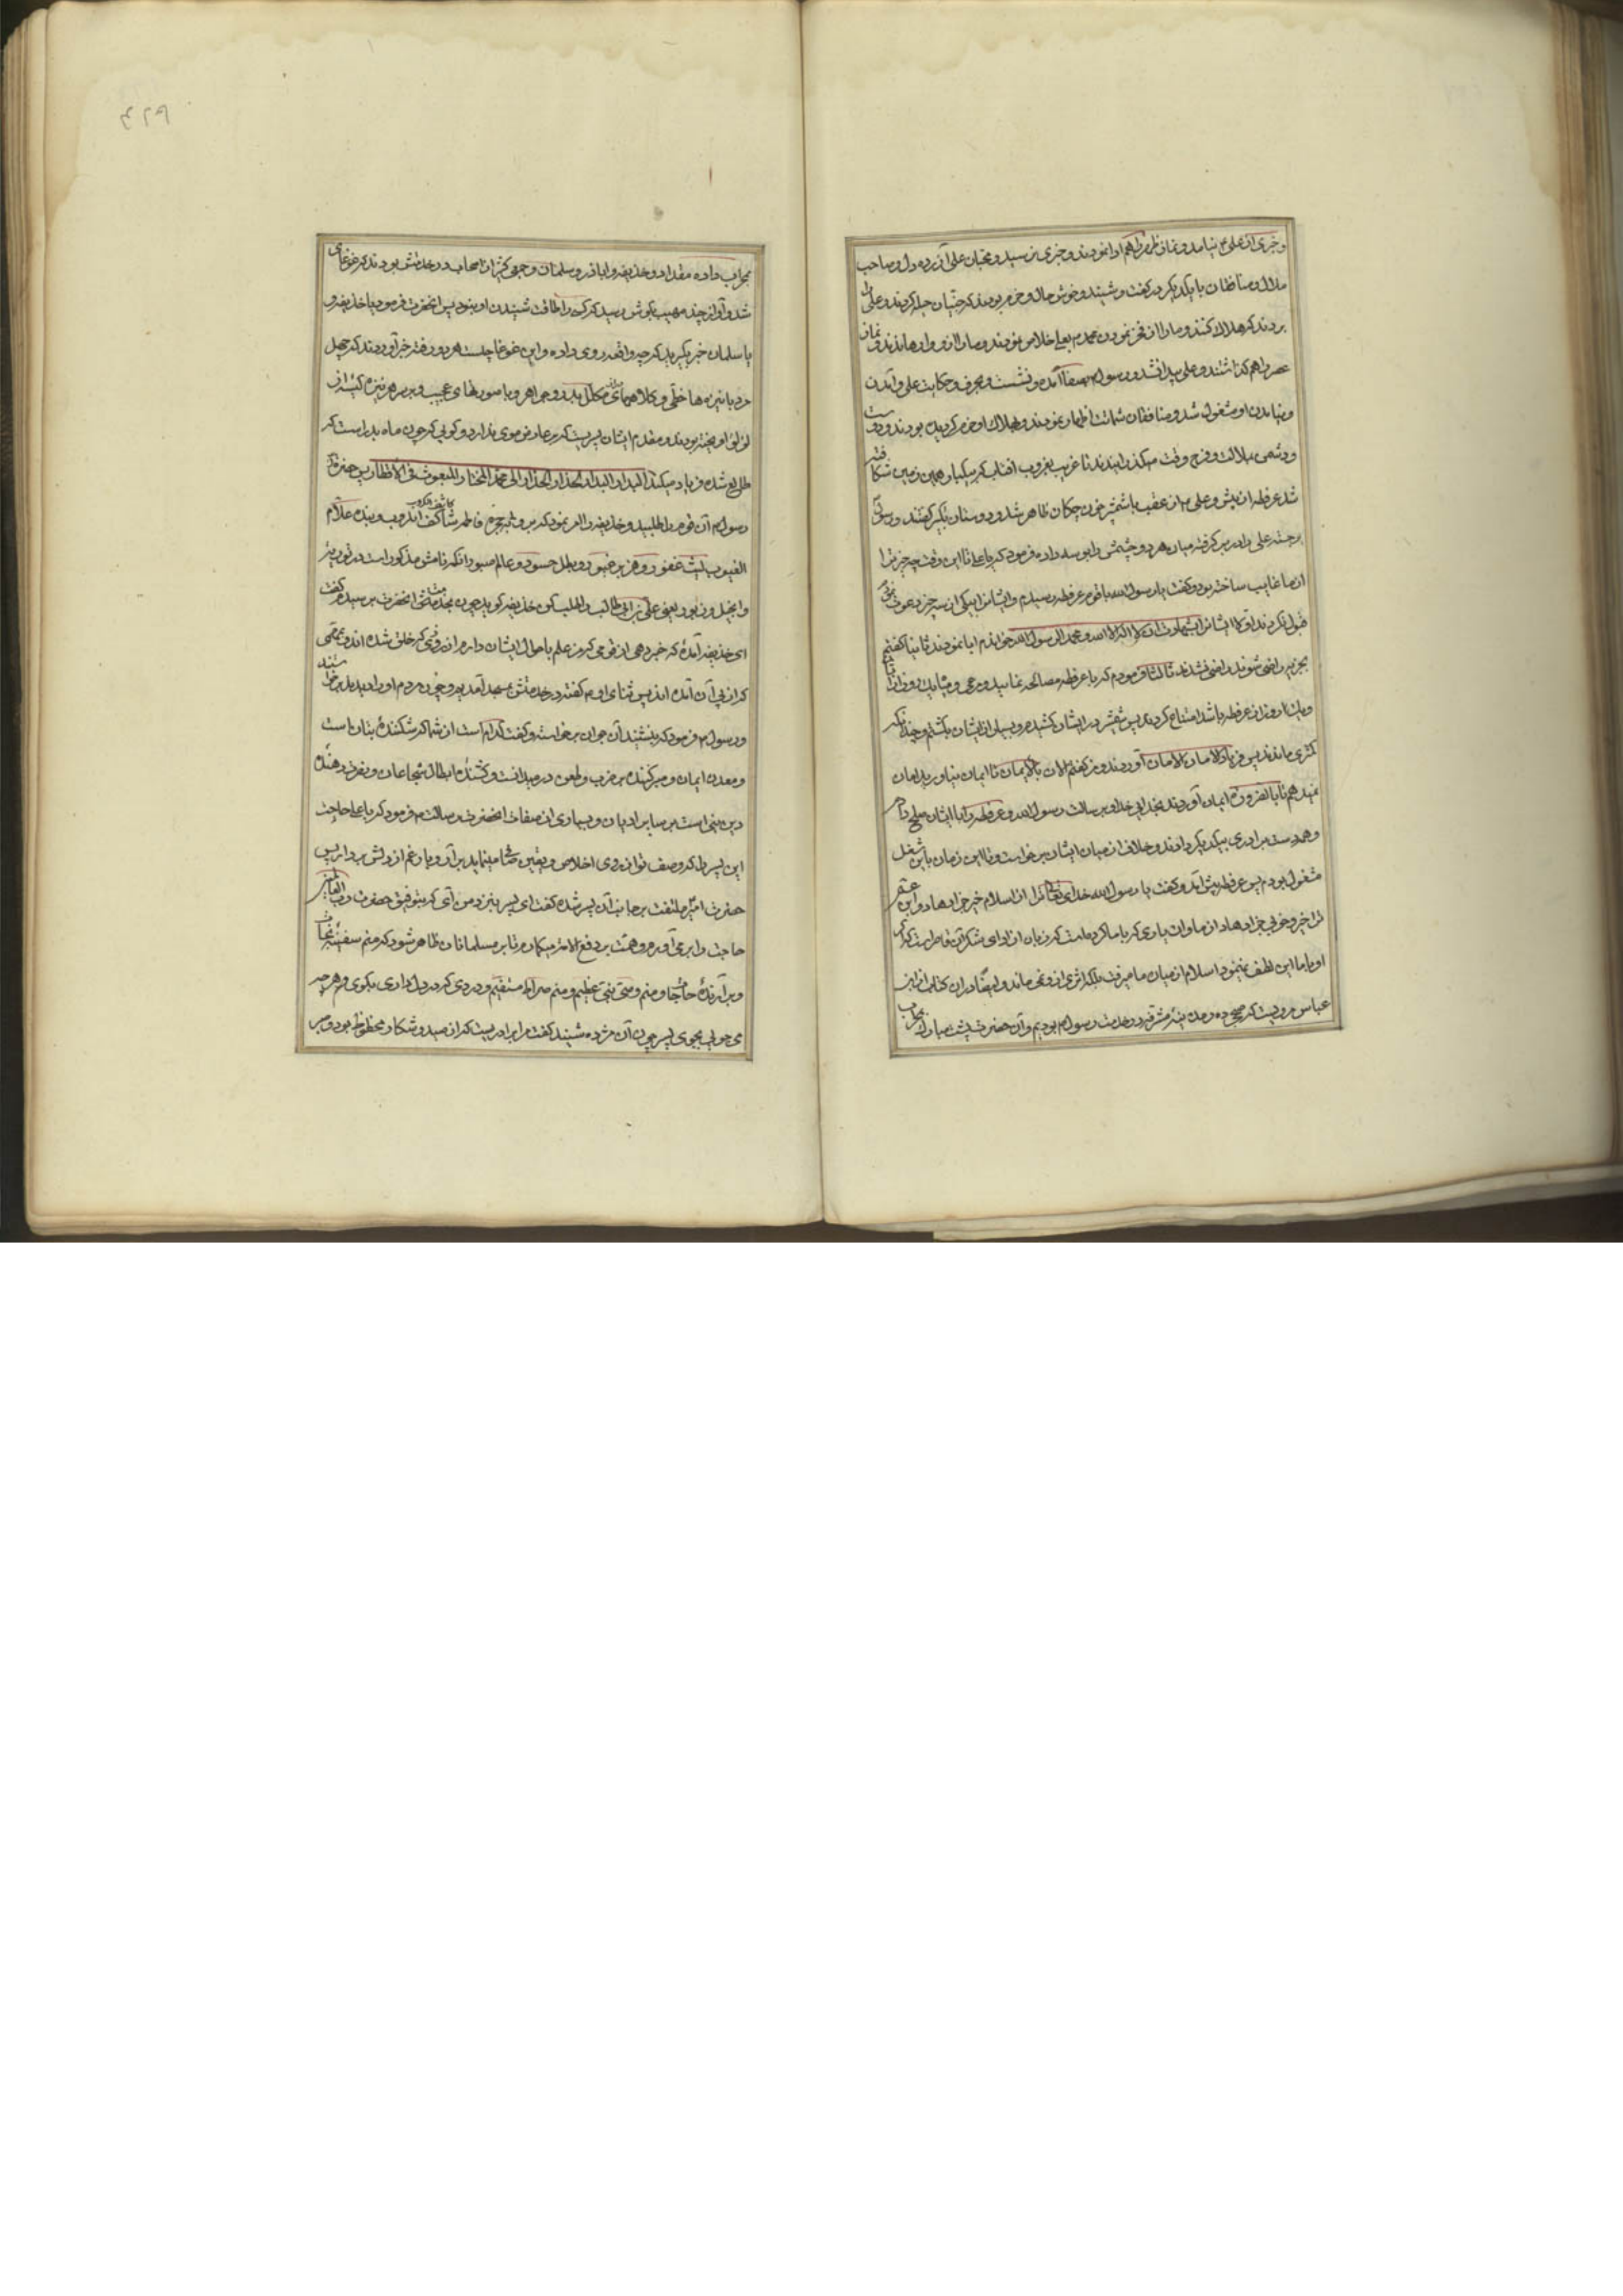 و خبری از علی ع نیامد و نماز ظهر را هم ادا نمودند و خبری نرسید و محبان علی آزرده دل و صاحب
ملال و منافقان با یکدیگر در گفت و شنید و خوش حال و خرم بودند که جنیان حیله کردند و علی را
بردند که هلاک کنند و ما را از فخر نمودن محمد م بعلی خلاص نمودند و ما را از او رهانیدند و نماز
عصر را هم گذاشتند و علی پیدا نشد و رسول م بصفا آمده و نشست و بحرف و حکایت علی و آمدن
و نیامدن او مشغول شد و منافقان شماتت اظهار نمودند و بهلاک او خرم گردیده بودند و دوست
و دشمن بملالت و فرح وقت میگذرانیدند تا قریب بغروب افتاب که میکبار همین زمین شکافته
شد عرفطه از پیش و علی م از عقب با شمشیر خون چکان ظاهر شد و دوستان تکبیر گفتند و رسول
برجسته علی را در بر گرفته میان هر دو چشمش را بوسه داده فرمود که یا علی تا این وقت چه چیز ترا
از ما غایب ساخته بود و گفت یا رسول الله با قوم عرفطه رسیدم و ایشانرا بیکی از سه چیز دعوت نمودم
قبول نکردند اولا ایشانرا بشهادت ان لا اله الا الله و محمد الرسول الله خواندم ابا نمودند ثانیا گفتم
بجزیه راضی شوند راضی نشدند ثالثا فرمودم که با عرفطه مصالحه نمایید و مرعی و میاه یک روز از شما
و یک روز از عرفطه باشد امتناع کردند پس شمشیر در ایشان کشیدم و بسیار از ایشان بکشتم و چند آنکه
کمتری ماندند پس فریاد الامان الامان آوردند و من گفتم الامان بالایمان تا ایمان نیاورید امان
نمیدهم تا بالضروره ایمان آوردند بخدایی خدا و برسالت رسول الله و عرفطه را با ایشان صلح دادم
و همه دست برادری بیکدیگر دادند و خلاف از میان ایشان برخواست و تا این زمان باین شغل
مشغول بودم پس عرفطه پیش آمد و گفت یا رسول الله خدای تعالی ترا از اسلام خیر جزا دهاد و ابن عم
ترا خیر و خوبی جزا دهاد از ما و آن یاری که با ما کرده است که زبان از ادای شکر آن قاصر است که اگر
او با ما این لطف نمینمود اسلام از میان ما میرفت بلکه اثری از او نمی ماند و ایضا در ان کتاب از ابن
عباس مرویست که صبحی ده در مدینه مشرفه در خدمت رسول م بودیم و آن حضرت پشت مبارک بمحراب
بمحراب داده مقداد و حذیفه و اباذر و سلمان و جمعی کثیر از اصحاب در خدمتش بودند که غوغای
شد و آواز چند مهیب بگوش رسید که کسی را طاقت شنیدن او نبود پس انحضرت فرمود یا حذیفه و
یا سلمان خبر بگیرید که چه واقعه روی داده و این غوغا چیست هر دو رفته خبر آوردند که چهل
مرد با نیزه ها خطی و کلاهای مکلل بدر و جواهر و با صورتهای عجیب و بر سر هر نیزه کیسه از
لولؤ اویخته بودند و مقدم ایشان پسریست که بر عارض موی ندارد و گویی که چون ماه بدر است که
طالع شده فریاد میکند البدار البدار الحذار الحذار الی محمد المختار المبعوث فی الاقطار پس حضرت
رسول م آن قوم را طلبید و حذیفه را امر نمود که برو بحجره فاطمه کاشف الکروب و بنده علام
الغیوب لیث غضور و هزبر غیور و بطل جسور و عالم صبور آنکه نامش مذکور است در توریة
و انجیل و زبور یعنی علی بن ابی طالب را طلب کن حذیفه گوید چون بخدمت انحضرت برسیدم گفت
ای حذیفه آمدۀ که خبر دهی از قومی که من علم باحوال ایشان دارم از روزی که خلق شده اند و بمقامی
که از پی آن آمده اند پس ثنای او م گفته در خدمتش بمسجد آمدیم و چون مردم او را دیدند برخواستند
و رسول م فرمود که بنشینند آن جوان برخواست و گفت کدام است از شما که شکنندۀ بتان است
و معدن ایمان و صبر کننده بر ضرب و طعن در میدانست و کشندۀ ابطال شجاعان و نصرت دهنده
دین نبی است بر سایر ادیان و بسیاری از صفات انحضرت رسالت م فرمود که یا علی حاجت
این پسر را که وصف تو از روی اخلاص و یقین مینماید بر آر و بار غم از دلش بردار پس
حضرت امیر ملتفت بجانب آن پسر شده گفت ای پسر بنزد من آی که بتوفیق حضرت رب العالمین
حاجت را بر می آورم و همت بر دفع الام تو میکمارم تا بر مسلمانان ظاهر شود که منم سفینه نجات
و بر آرندۀ حاجات و منم وصی نبی عظیم و منم صراط مستقیم و دردی که در دل داری بگوی و هر چه
می جویی بجوی پسر چون آن مژده شنید گفت مرا برادریست که از صید و شکار محظوظ بود و